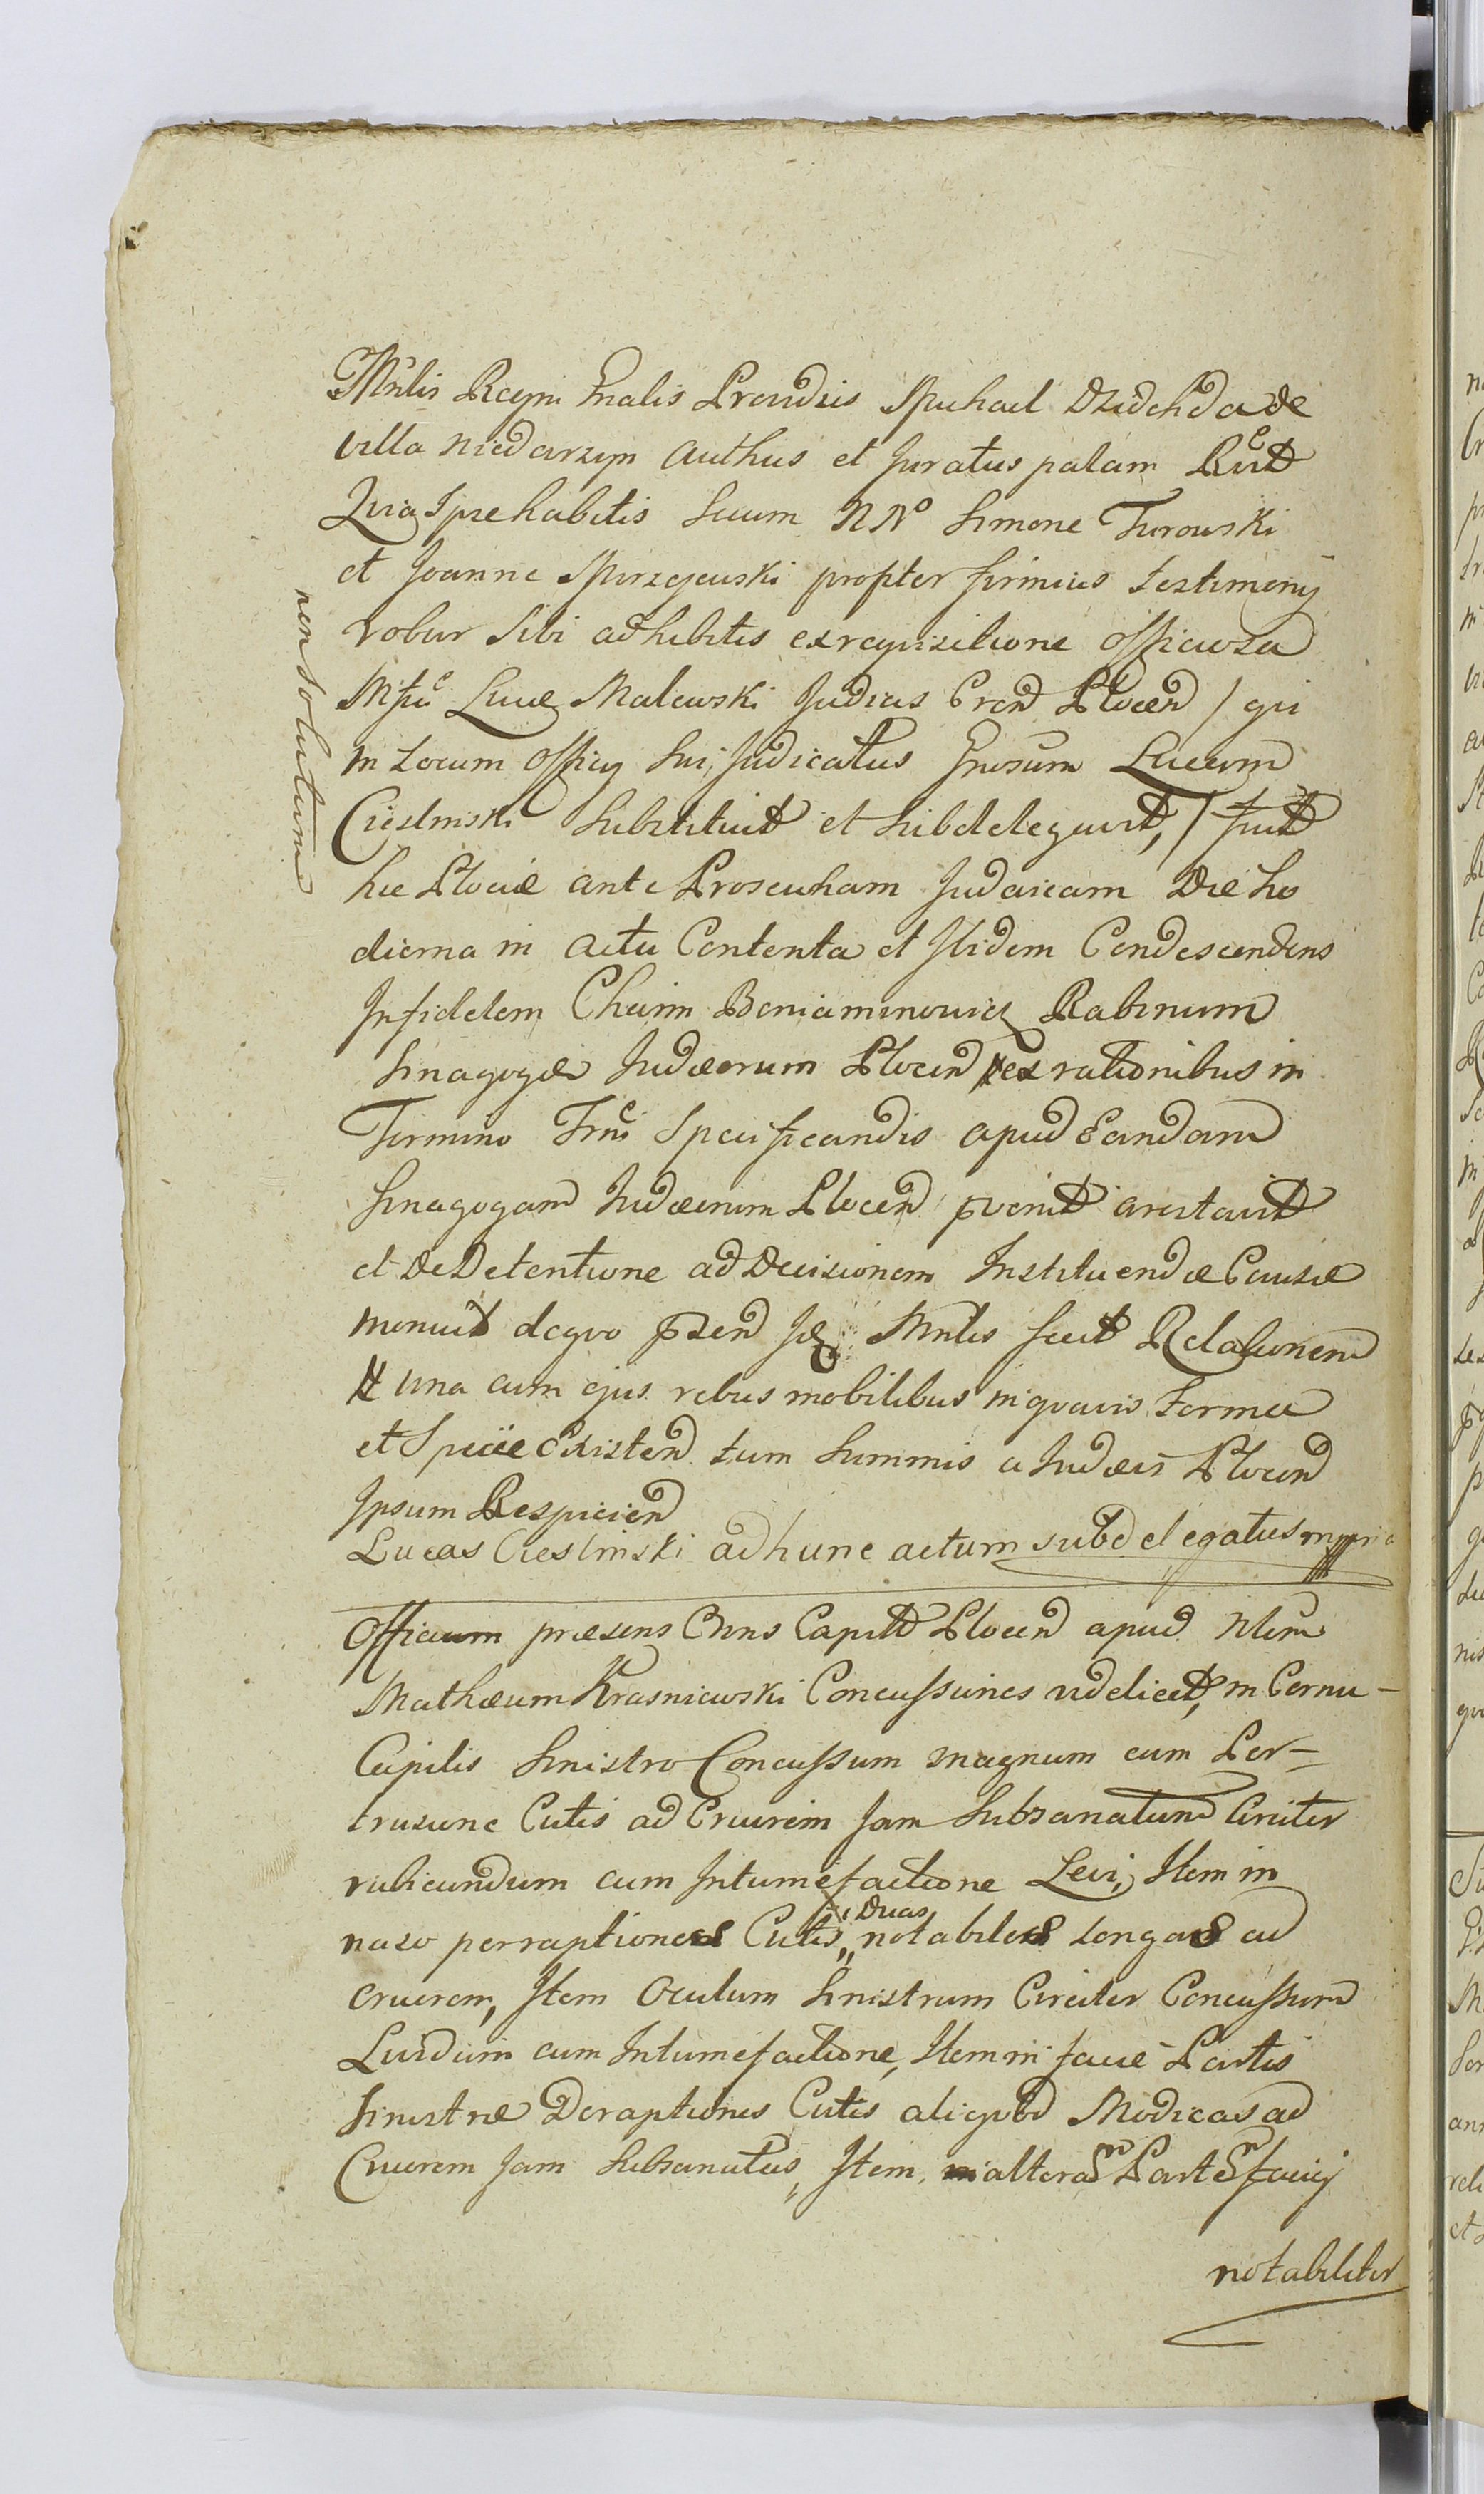 Mnlis Regni Gnalis Providus Michael Dzidchda de
villa Niedarzyn Authus et Juratus palam Rcut
Quia Ipse habitis Secum NNo Simone Turowski
et Joanne Mirzejewski propter firmius testimonij
robur Sibi adhibitis ex requisitione officiosa
Mfci Lucæ Malewski Judicis Cren Plocen / qui
in Locum Officij Sui Judicatus Gnosum Lucam
Cieslinski Substituit et Subdelegavit, / fuit
hic Plociæ ante Proseucham Judaicam Die ho
dierna in actu Contenta et Ibidem Condescendens
Infidelem Chaim Beniaminowicz Rabinum
Sinagogæ Judæorum Plocen ex rationibus in
Termino Trni Specificandis apud Eandam
Sinagogam Judæorum Plocen pvenit arestavit
et De Detentione ad Decisionem Instituendæ Causæ
monuit de quo pzen Jd Mnlis fecit Relationem
una cum ejus rebus mobilibus in quavis Forma
et Specie Existen tum Summis a Judæis Plocen
Ipsum Respicien
Lucas Cieslinski ad hunc actum subdelegatus mppria
non Solutum
Officium præsens Crns Capitt Plocen apud Nlem
Mathæum Krasniewski Concussiones videlicet, in Cornu-
Capitis Sinistro Concussum magnum cum Per-
trusione Cutis ad Cruorem Jam Subsanatum Circiter
rubicundum cum Intumefactione Levi, Item in
naso perraptiones Cutis, Duas notabiles Longas ad
cruorem, Item Oculum Sinistrum Circiter Concussum
Lividum cum Intumefactione, Item in facie Partis
Sinistræ Deraptiones Cutis aliquod Modicas ad
Cruorem Jam Subsanatas, Item, in altera Parte faciej
notabiliter